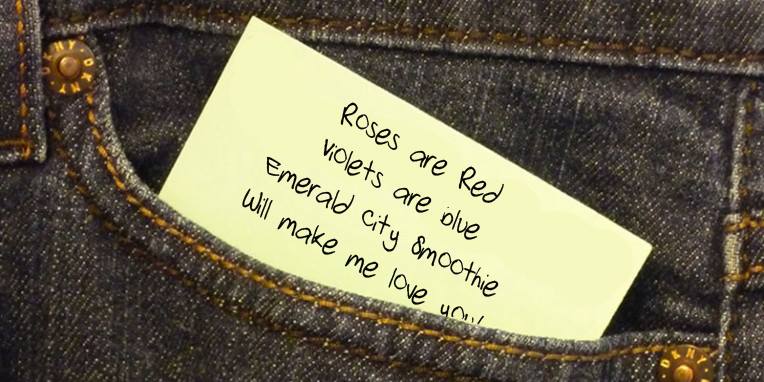 Roses are Red
violets are blue
Emerald City Smoothie
Will make me love you!
DKNY DKNY
DKNY